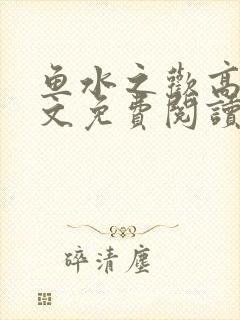 鱼水之歡高
文免費閱讀
碎清塵